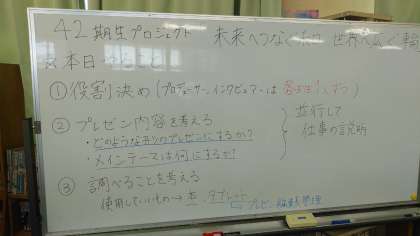 42期生プロジェクト 未来へつなぐ 世界へ広ぐ輪
☆本日やること
① 役割決め(プロデューサー、インタビュアーは 1人ずつ)
② プレゼン内容を考える
・どのような形のプレゼンにするか?
・メインテーマは何にするか?
並行して
仕事の説明
③ 調べることを考える
使用していいもの→本、タブレット
プレゼン 編集 管理